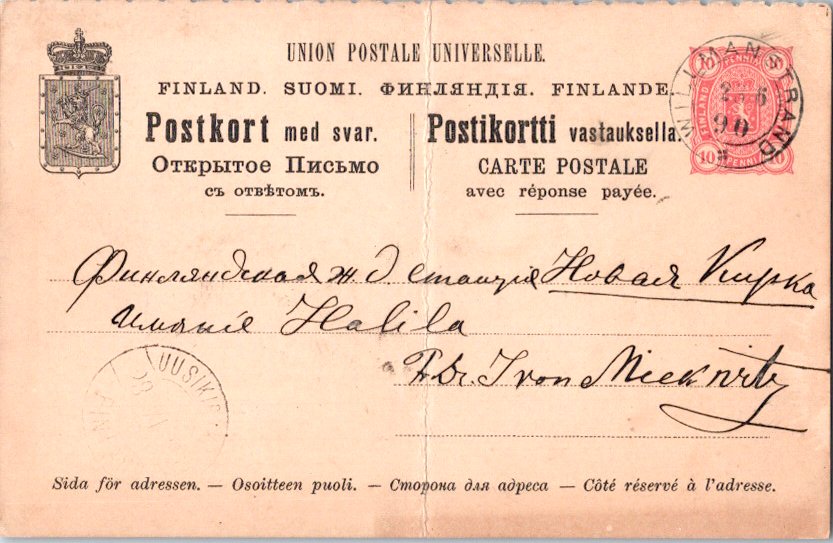 UNION POSTALE UNIVERSELLE.
FINLAND. SUOMI. ФИНЛЯНДІЯ. FINLANDE.
Postkort med svar.
Открытое Письмо
съ отвѣтомъ.
Postikortti vastauksella.
CARTE POSTALE
avec réponse payée.
10 PENNIÄ 10
FINLAND
10 PENNIÄ 10
WILLMANSTRAND
90
Финляндская ж. д. станція Новая Кирка
имѣніе Halila
Dr. Ivon
UUSIKIR
FIN
Sida för adressen. — Osoitteen puoli. — Сторона для адреса — Côté réservé à l'adresse.